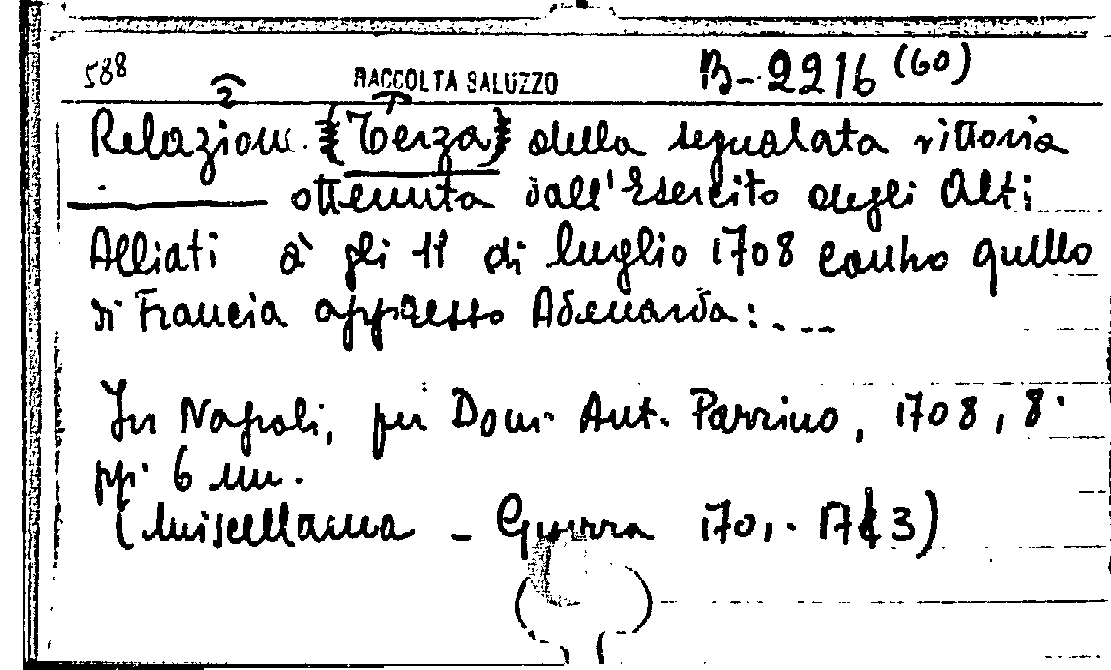 588 RACCOLTA SALUZZO B-2216 (60)
2
Relazione (Terza) della segnalata vittoria
ottenuta dall'Esercito degli Alti
Alliati à gli 11 di luglio 1708 contro quello
di Francia appresso Adenarda: ...
In Napoli, per Dom. Ant. Parrino, 1708, 8°
pp. 6 nn.
(Miscellanea - Guerra 1701-1713)